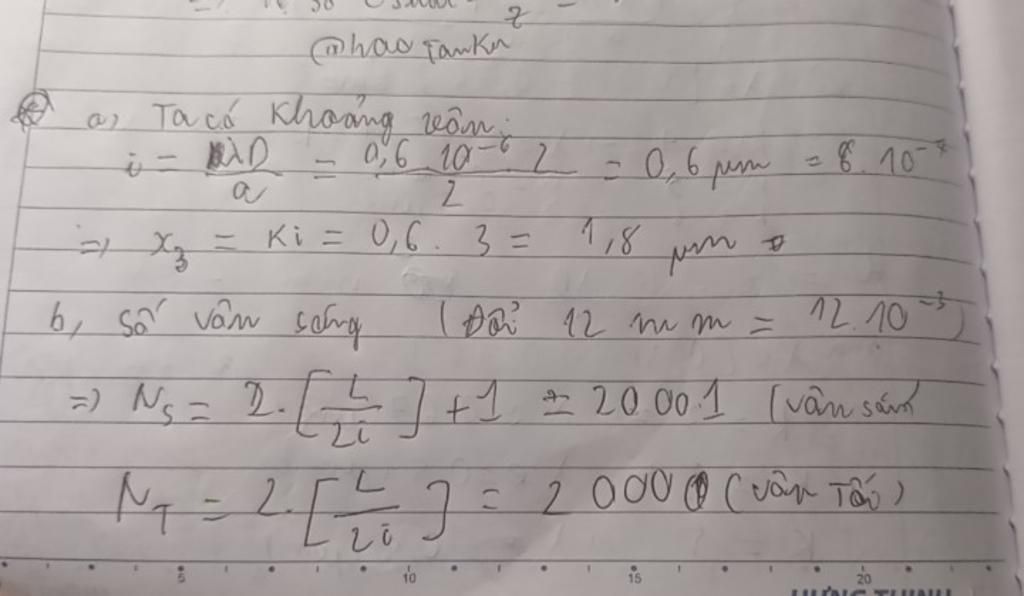 @haotamkn
a, Ta có khoảng vân:
i = λD/a = 0,6.10⁻⁶.2/2 = 0,6 μm = 6.10⁻⁷
=> x₃ = Ki = 0,6 . 3 = 1,8 μm
b, số vân sáng (Đổi 12 mm = 12.10⁻³)
=> Nₛ = 2.[L/2i] + 1 = 20001 (vân sáng
N_T = 2.[L/2i] = 20000 (vân Tối)
5 10 15 20
HƯNG THỊNH